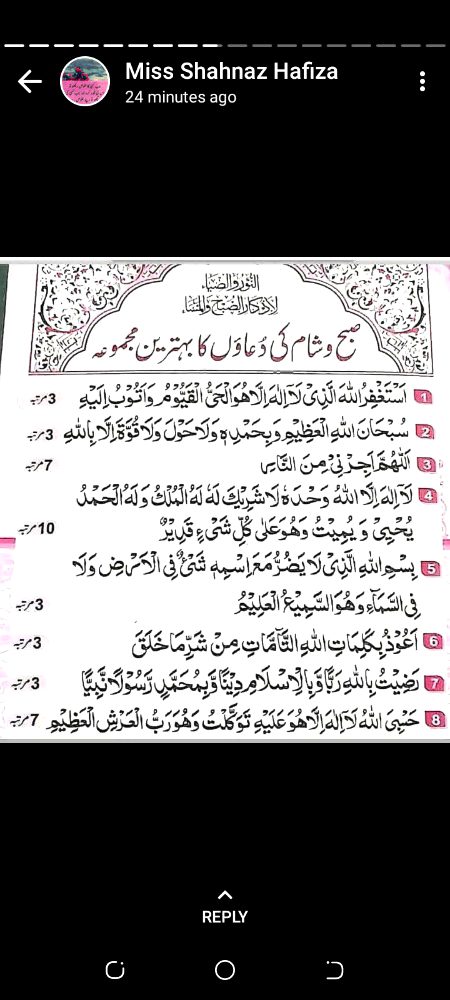 Miss Shahnaz Hafiza
24 minutes ago
النور والضیاء
لاذکار الصباح والمساء
صبح و شام کی دُعاؤں کا بہترین مجموعہ
1 اَسْتَغْفِرُ اللهَ الَّذِیْ لَآ اِلٰهَ اِلَّا هُوَ الْحَیُّ الْقَیُّوْمُ وَاَتُوْبُ اِلَیْهِ 3 مرتبہ
2 سُبْحَانَ اللهِ الْعَظِیْمِ وَبِحَمْدِهٖ وَلَا حَوْلَ وَلَا قُوَّةَ اِلَّا بِاللهِ 3 مرتبہ
3 اَللّٰهُمَّ اَجِرْنِیْ مِنَ النَّارِ 7 مرتبہ
4 لَآ اِلٰهَ اِلَّا اللهُ وَحْدَهٗ لَا شَرِیْكَ لَهٗ لَهُ الْمُلْكُ وَلَهُ الْحَمْدُ
یُحْیِیْ وَ یُمِیْتُ وَهُوَ عَلٰی کُلِّ شَیْءٍ قَدِیْرٌ 10 مرتبہ
5 بِسْمِ اللهِ الَّذِیْ لَا یَضُرُّ مَعَ اسْمِهٖ شَیْءٌ فِی الْاَرْضِ وَلَا
فِی السَّمَآءِ وَهُوَ السَّمِیْعُ الْعَلِیْمُ 3 مرتبہ
6 اَعُوْذُ بِکَلِمَاتِ اللهِ التَّآمَّاتِ مِنْ شَرِّ مَا خَلَقَ 3 مرتبہ
7 رَضِیْتُ بِاللهِ رَبًّا وَّبِالْاِسْلَامِ دِیْنًا وَّبِمُحَمَّدٍ رَّسُوْلًا نَّبِیًّا 3 مرتبہ
8 حَسْبِیَ اللهُ لَآ اِلٰهَ اِلَّا هُوَ عَلَیْهِ تَوَکَّلْتُ وَهُوَ رَبُّ الْعَرْشِ الْعَظِیْمِ 7 مرتبہ
REPLY